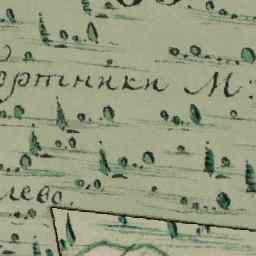 ортники М:
лево.